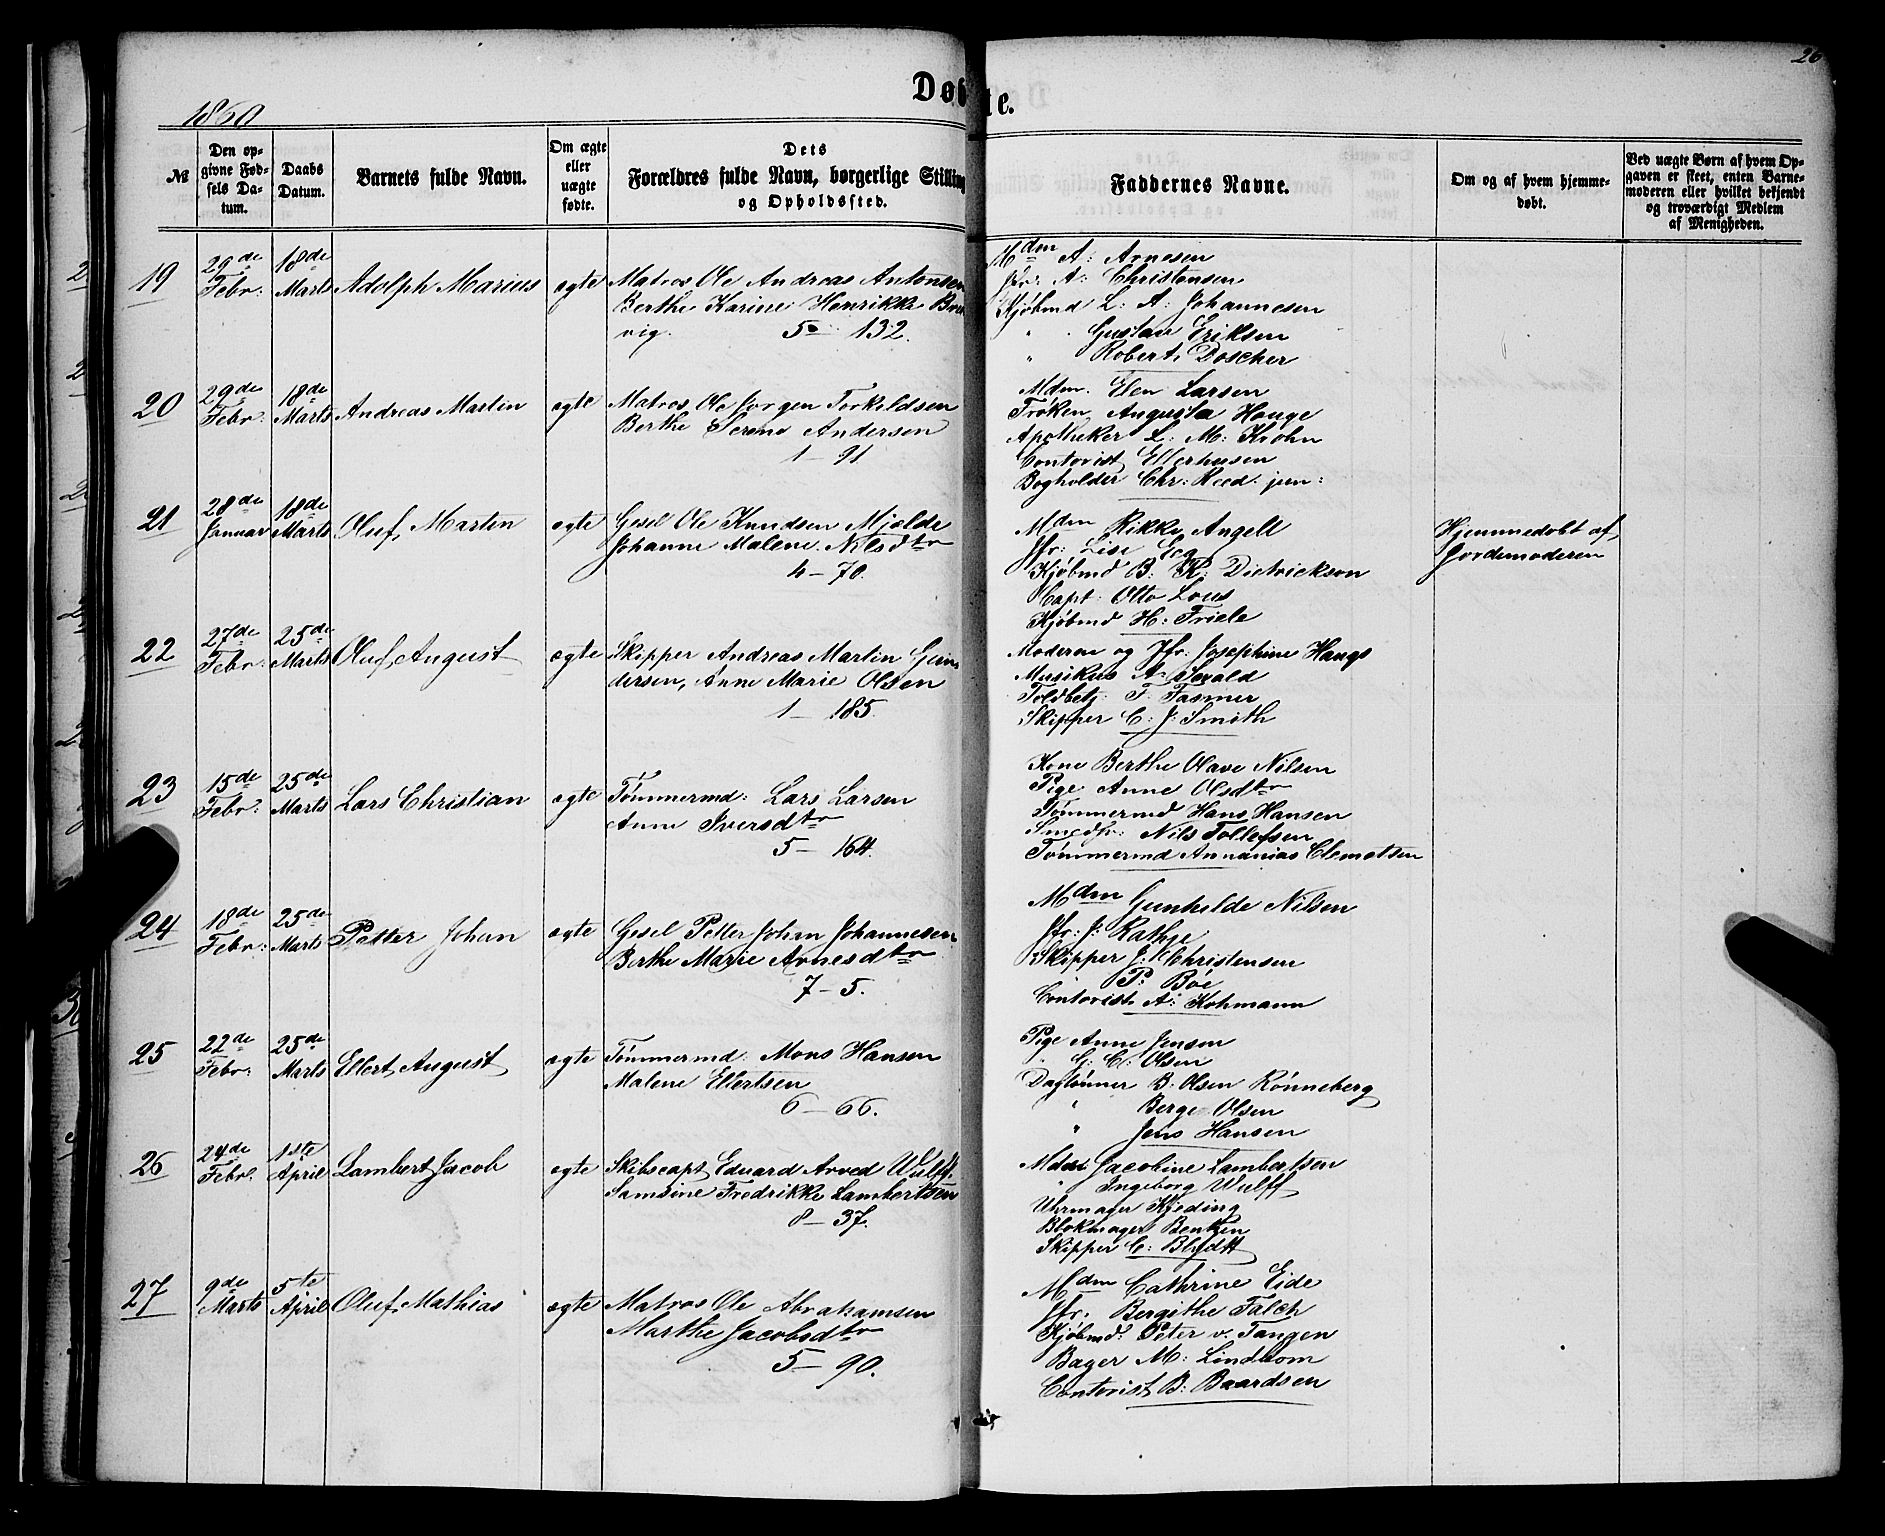 Døbte.
26
1860
№
Den op-
givne Fød-
sels Da-
tum.
Daabs
Datum.
Barnets fulde Navn.
Om ægte
eller
uægte
fødte.
Dets
Forældres fulde Navn, borgerlige Stilling
og Opholdssted.
Faddernes Navne.
Om og af hvem hjemme-
døbt.
Ved uægte Børn af hvem Op-
gaven er skeet, enten Barne-
moderen eller hvilket bekjendt
og troværdigt Medlem
af Menigheden.
19
29de
Febr:
18de
Marts
Adolph Marius
ægte
Matros Ole Andreas Antonsen
Berthe Karine Henrikke
vig.
5 - 132.
Mdm A: Arnesen
Jfr: A: Christensen
Kjøbmd L: A: Johannesen
" Gustav Eriksen
" Robert Døscher
20
29de
Febr:
18de
Marts
Andreas Martin
ægte
Matros Ole Jørgen Torkildsen
Berthe Serene Andersen
1 - 91
Mdm. Elen Larsen
Frøken Augusta Hauge
Apotheker L: M: Krohn
Contorist Ellerhusen
Bogholder Chr: Reed. jun:
21
28de
Januar
18de
Marts
Oluf Martin
ægte
Gesel Ole Knudsen Mjelde
Johanne Malene Nilsdtr
4 - 70.
Mdm Rikke Angell
Jfr: Lise Eeg
Kjøbmd B: K: Dietrickson
Capt: Otto Lous
Kjøbmd H: Friele
Hjemmedøbt af
Jordemoderen
22
27de
Febr:
25de
Marts
Oluf August
ægte
Skipper Andreas Martin Gun
dersen, Anne Marie Olsen
1 - 185.
Moderne og Jfr: Josephine Haugs
Musikus A: Sevald
Toldbetj. T: Fasmer
Skipper C: J: Smith
23
15de
Febr:
25de
Marts
Lars Christian
ægte
Tømmermd: Lars Larsen
Anne Iversdtr
5 - 164.
Kone Berthe Olave Nilsen
Pige Anne Olsdtr
Tømmermd Hans Hansen
Smedsv: Nils Tollefsen
Tømmermd Annanias Clematsen
24
18de
Febr:
25de
Marts
Petter Johan
ægte
Gesel Petter Johan Johannesen
Berthe Marie Arnesdtr
7 - 5.
Mdm Gunhilde Nilsen
Jfr: J: Rathje
Skipper J: Christensen
" P: Bøe
Contorist A: Kohmann
25
22de
Febr:
25de
Marts
Ellert August
ægte
Tømmermd: Mons Hansen
Malene Ellertsen
6 - 66.
Pige Anne Jensen
" G: C: Olsen
Daglønner B: Olsen Rønneberg
" Berge Olsen
" Jens Hansen
26
24de
Febr.
1ste
April
Lambert Jacob
ægte
Skibscapt Eduard Arved Wulff
Samsine Fredrikke Lambertsen
8 - 37.
Mdm Jacobine Lambertsen
" Ingeborg Wulff
Uhrmager Kjeding
Blokmager Bentzen
Skipper C: Blydt
27
9de
Marts
5te
April
Oluf Mathias
ægte
Matros Ole Abrahamsen
Marthe Jacobsdtr
5 - 90.
Mdm Cathrine Eide
Jfr: Bergithe Falch
Kjøbmd: Peter v. Tangen
Bager M: Lindbom
Contorist B: Baardsen